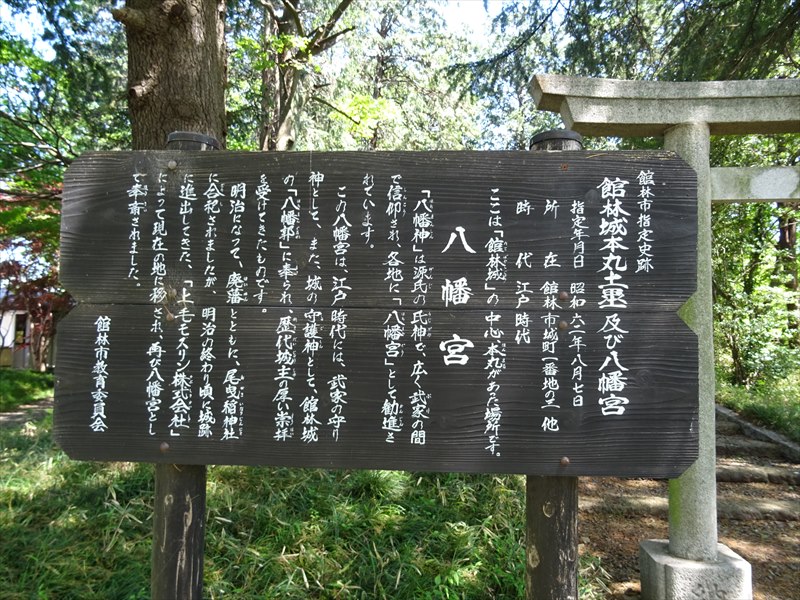 館林市指定史跡
館林城本丸土塁及び八幡宮
指定年月日 昭和六二年八月七日
所在 館林市城町一番地の一 他
時代 江戸時代
ここは「館林城」の中心、本丸があった場所です。
八幡宮
「八幡神」は源氏の氏神で、広く武家の間
で信仰され、各地に「八幡宮」として勧進さ
れています。
この八幡宮は、江戸時代には、武家の守り
神として、また、城の守護神として、館林城
の「八幡郭」に奉られ、歴代城主の厚い崇拝
を受けてきたものです。
明治になって、廃藩とともに、尾曳稲荷神社
に合祀されましたが、明治の終わり頃、城跡
に進出してきた、「上毛モスリン株式会社」
によって現在の地に移され、再び八幡宮とし
て奉斎されました。
館林市教育委員会